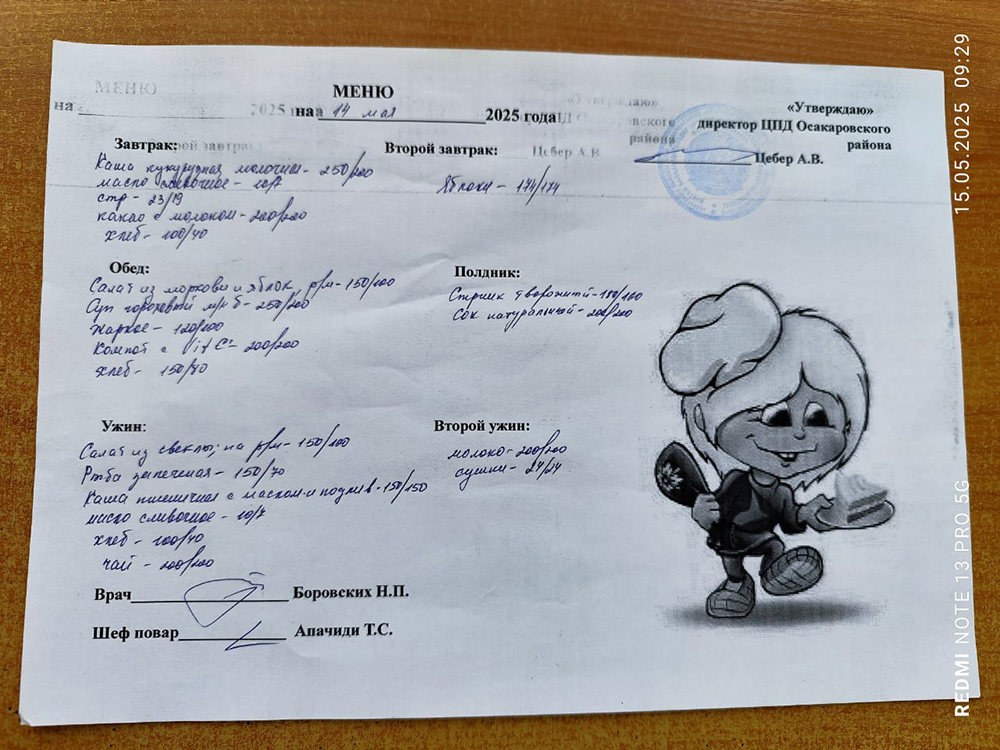 МЕНЮ
на 14 мая 2025 года
«Утверждаю»
директор ЦПД Осакаровского
района
Цебер А.В.
Завтрак:
Каша кукурузная молочная - 250/200
масло сливочное - 10/7
сыр - 23/19
какао с молоком - 200/200
хлеб - 100/40
Второй завтрак:
Яблоки - 174/174
Обед:
Салат из моркови и яблок, р/м - 150/100
Суп гороховый м/к б - 250/200
Жаркое - 120/200
Компот с Vit C - 200/200
хлеб - 150/70
Полдник:
Сырник творожный - 180/160
Сок натуральный - 200/200
Ужин:
Салат из свеклы, на р/м - 150/100
Рыба запеченая - 150/70
Каша пшеничная с маслом и подлив - 150/150
масло сливочное - 10/7
хлеб - 100/40
чай - 200/200
Второй ужин:
молоко - 200/200
сушки - 24/24
Врач Боровских Н.П.
Шеф повар Апачиди Т.С.
МЕНЮ
на 2025
«Утверждаю»
района
Цебер А.В.
REDMI NOTE 13 PRO 5G
15.05.2025 09:29